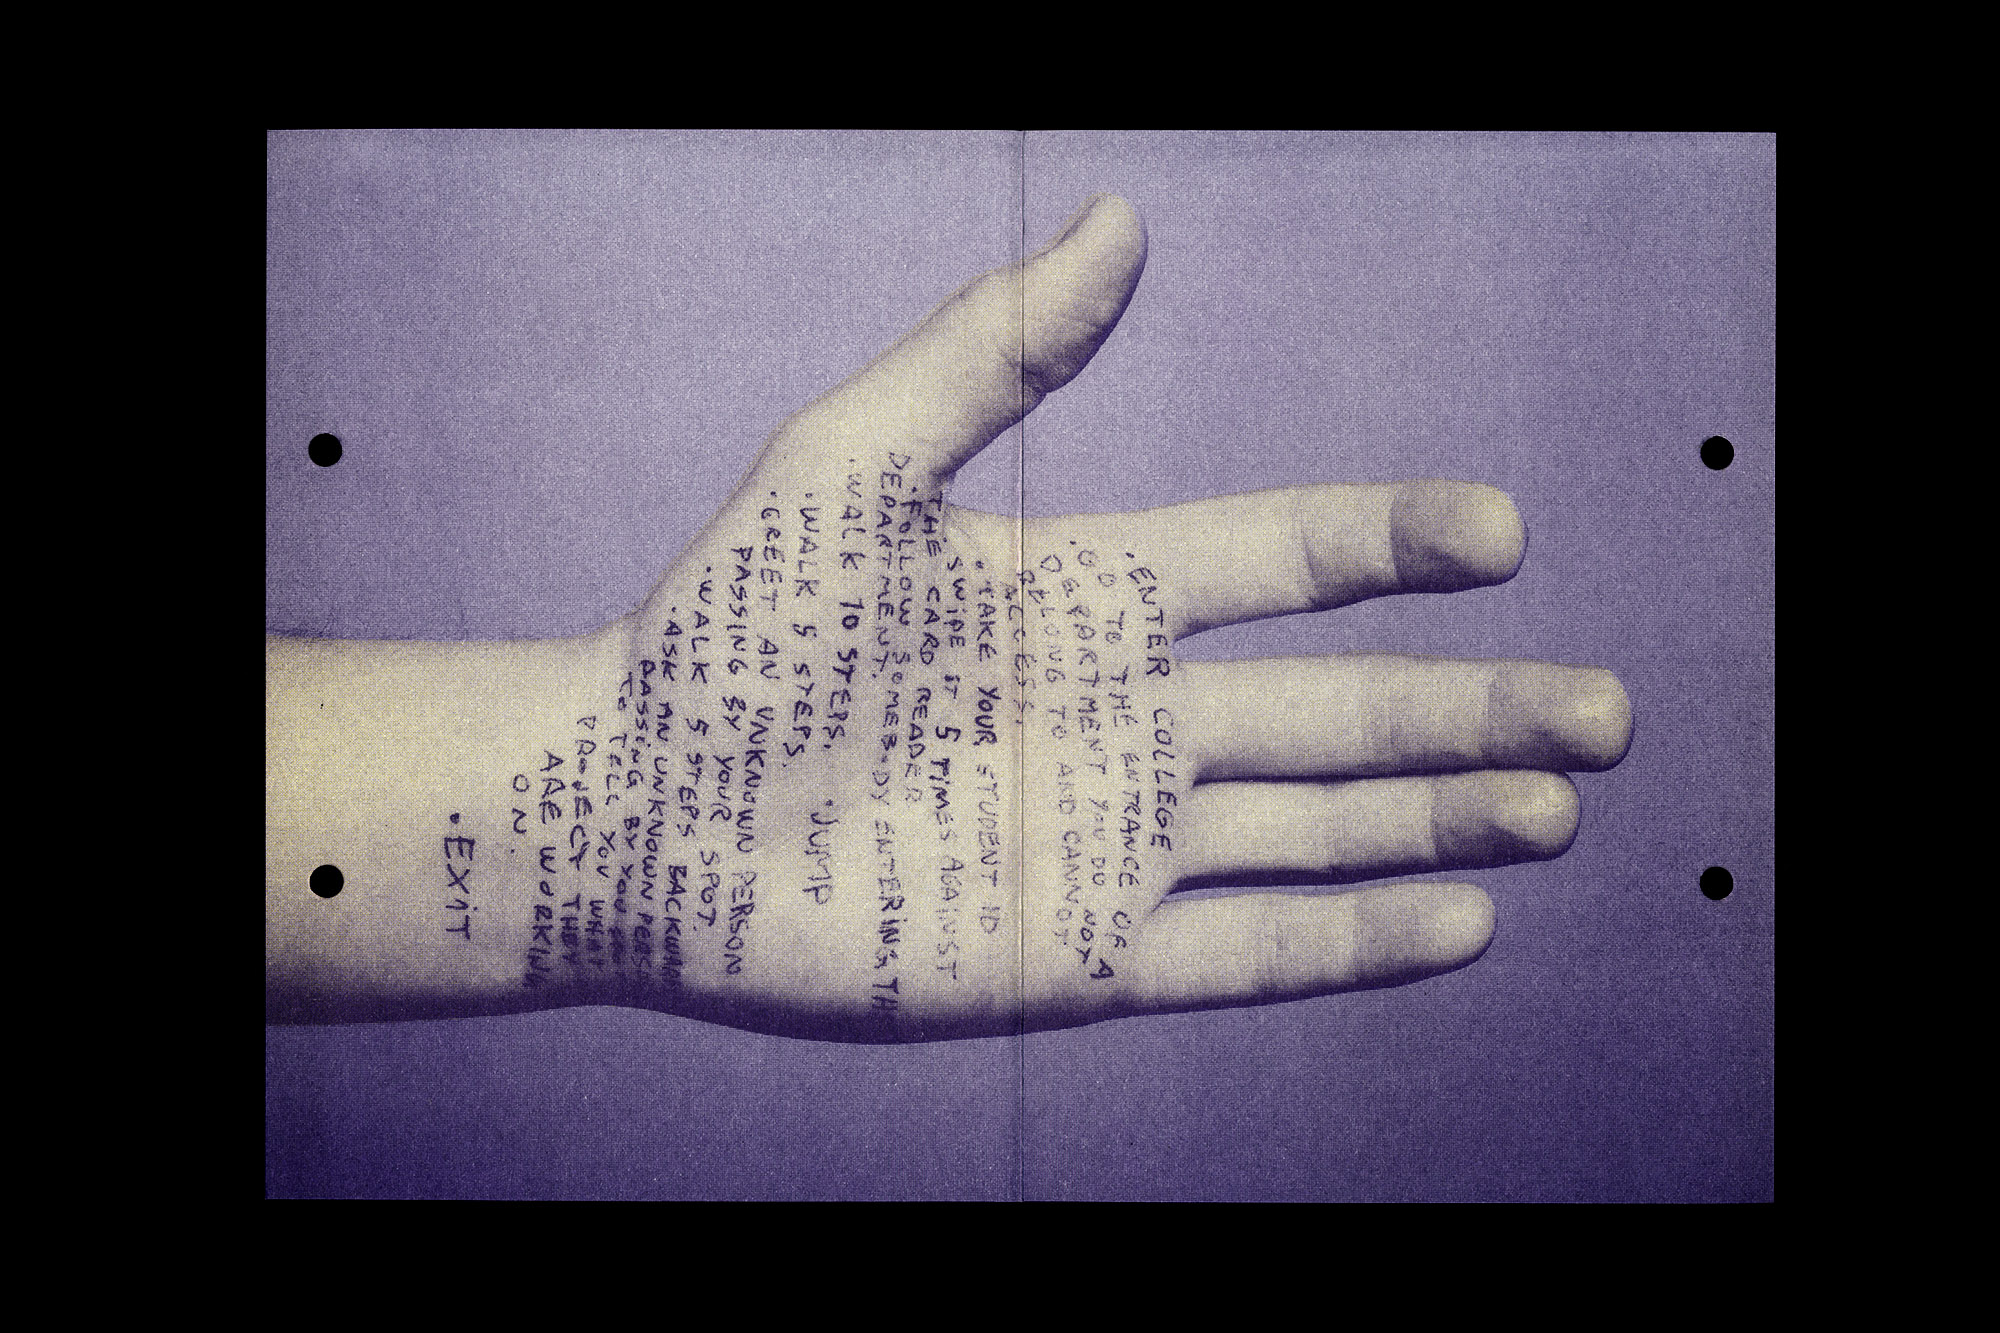 ·ENTER COLLEGE
·GO TO THE ENTRANCE OF A
DEPARTMENT YOU DO NOT
BELONG TO AND CANNOT
ACCESS.
·TAKE YOUR STUDENT ID
·SWIPE IT 5 TIMES AGAINST
THE CARD READER
·FOLLOW SOMEBODY ENTERING TH
DEPARTMENT.
·WALK 10 STEPS.
·JUMP
·WALK 5 STEPS.
·GREET AN UNKNOWN PERSON
PASSING BY YOUR SPOT.
·WALK 5 STEPS BACKWARD
·ASK AN UNKNOWN PERSON
PASSING BY YOU
TO TELL YOU WHAT
PROJECT THEY
ARE WORKING
ON.
·EXIT